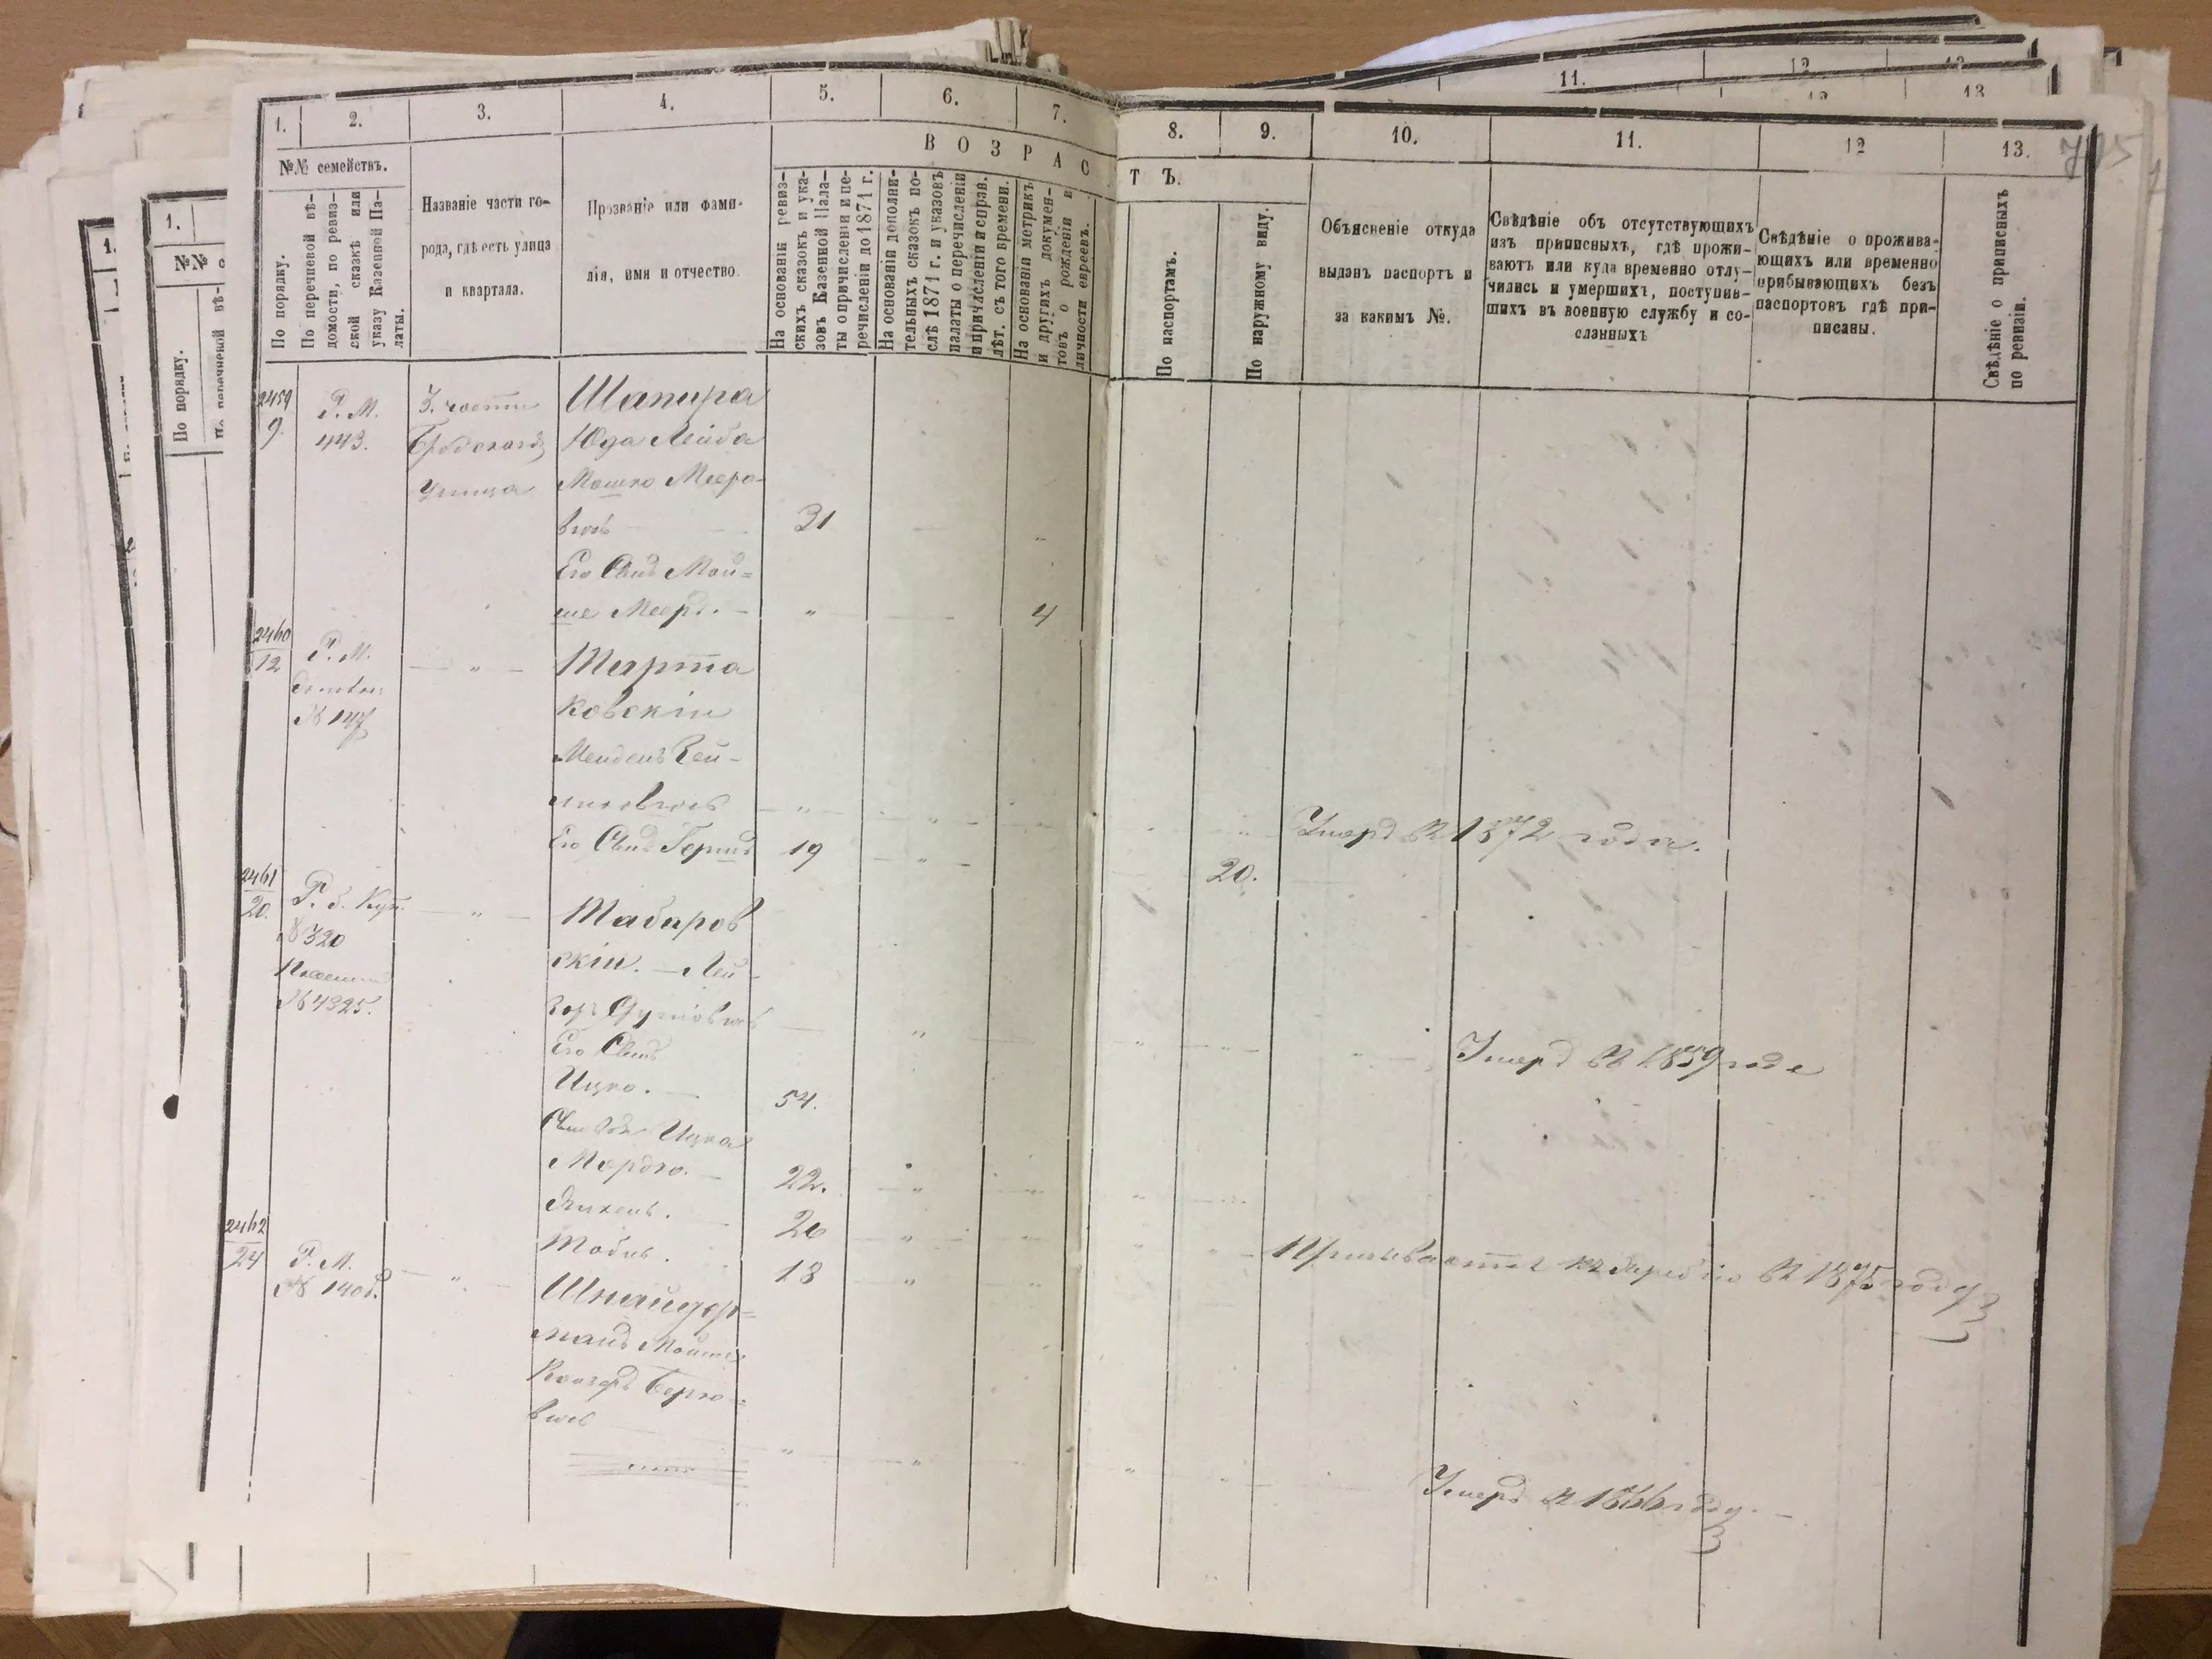 1.
2.
3.
4.
5.
6.
7.
8.
9.
10.
11.
12
13.
11.
12
13
1.
1.
№№
По порядку.
№№ семействъ.
По порядку.
По перечневой вѣ-
домости, по ревиз-
ской сказкѣ или
указу Казенной Па-
латы.
Названіе части го-
рода, гдѣ есть улица
и квартала.
Прозваніе или фами-
лія, имя и отчество.
ВОЗРАС
ТЪ.
На основаніи ревиз-
скихъ сказокъ и ука-
зовъ Казенной Пала-
ты о причисленіи и пе-
речисленіи до 1871 г.
На основаніи дополни-
тельныхъ сказокъ по-
слѣ 1871 г. и указовъ
палаты о перечисленіи
и причисленіи и справ.
лѣт. съ того времени.
На основаніи метрикъ
и другихъ докумен-
товъ о рожденіи и
личности евреевъ.
По паспортамъ.
По наружному виду.
Объясненіе откуда
выданъ паспортъ и
за какимъ №.
Свѣдѣніе объ отсутствующихъ
изъ приписныхъ, гдѣ прожи-
ваютъ или куда временно отлу-
чились и умершихъ, поступив-
шихъ въ военную службу и со-
сланныхъ
Свѣдѣніе о прожива-
ющихъ или временно
прибывающихъ безъ
паспортовъ гдѣ при-
писаны.
Свѣдѣніе о приписныхъ
по ревизіи.
2459
9.
Р. М.
443.
3. части
улица
Шапира
Юда Лейба
Мошко Мееро-
вичъ
31
Его Сынъ Мой=
ше Мееръ.
4
2460
12
Р. М.
№ 147
Тарта
ковскій
Мендель Зей-
Умеръ въ 1872 годе.
Его Сынъ Гершъ
19
20.
2461
20.
Р. б. Куп.
№ 320
№ 4325.
Табаров
скій. Лей-
зоръ
Умеръ въ 1859 годе
Его Сынъ
Ицко.
54.
Сыновья Ицка
Мордко.
22.
20
Тобія.
18
въ 1875 году
2462
24
Р. М.
Шнайдер=
манъ Мойше
Берко=
вичъ
Умеръ въ 1866 году.